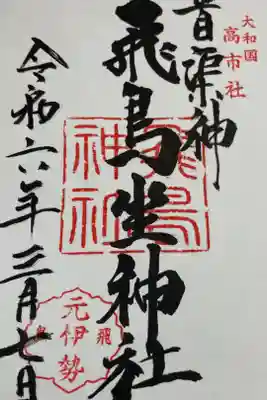 大和国
高市社
神
飛鳥坐神社
飛鳥
神社
元伊勢
飛鳥
令和六年三月七日